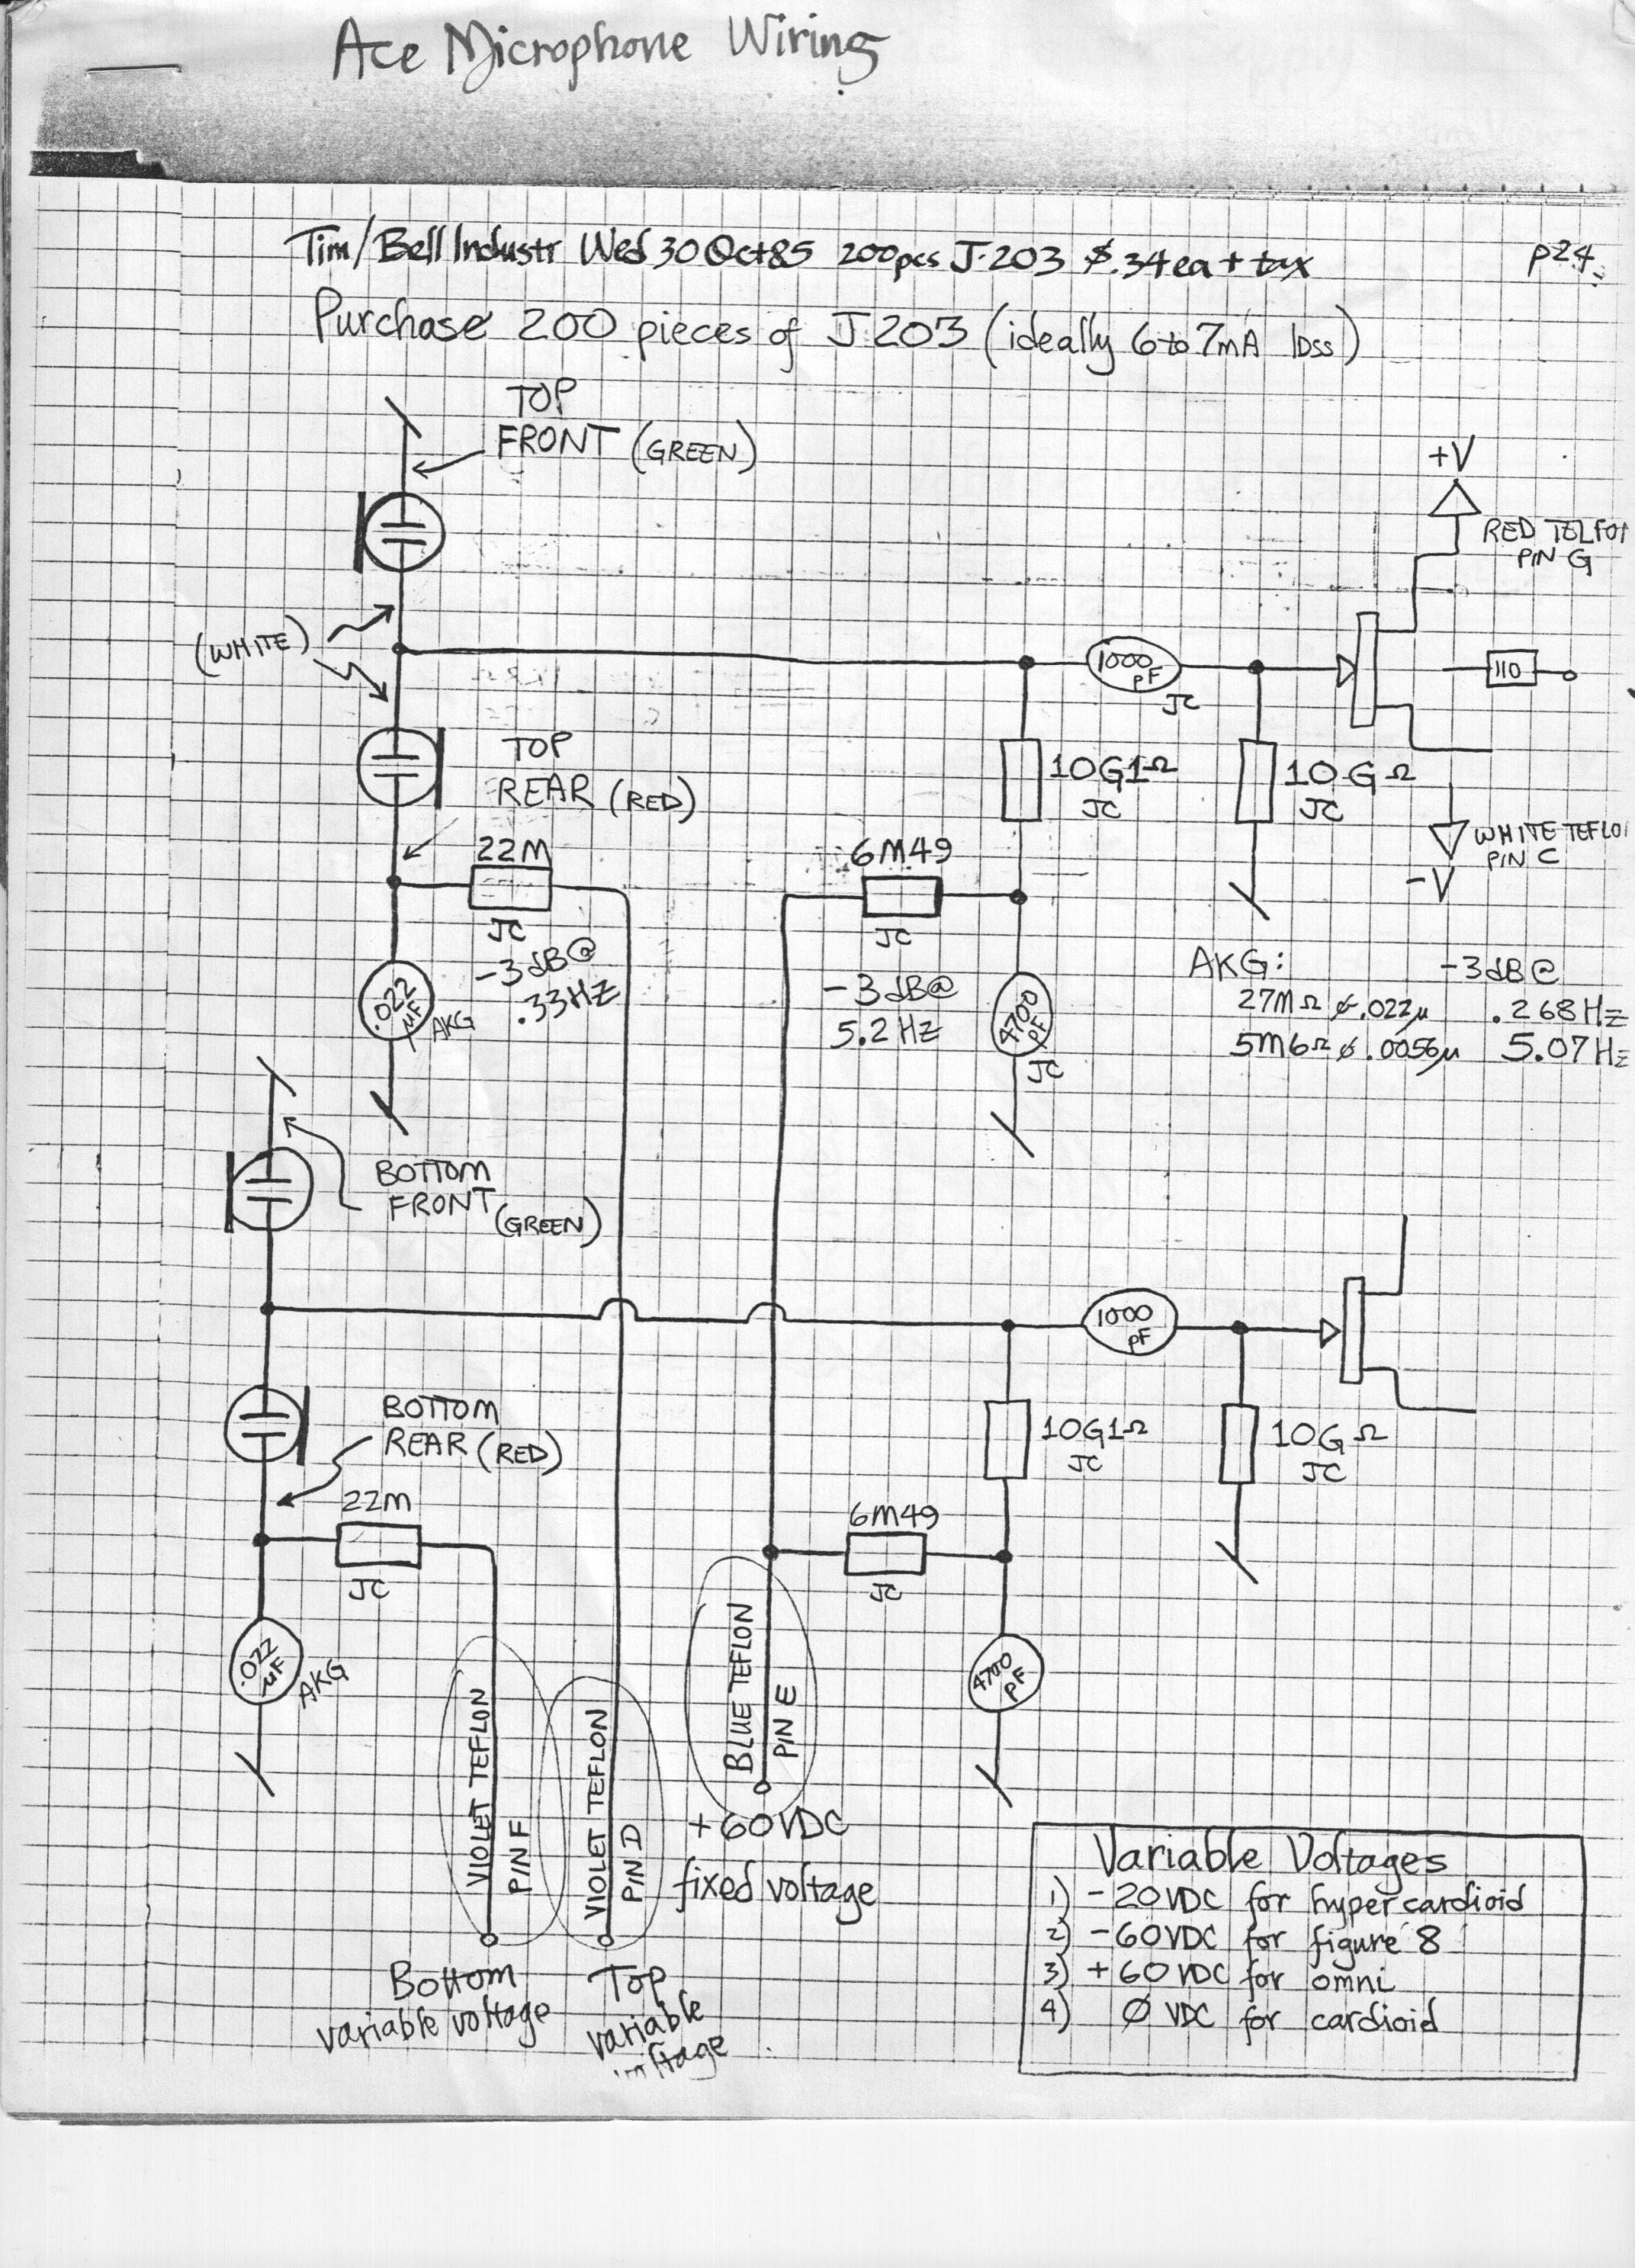 Ace Microphone Wiring
Tim/Bell Industr Wed 30 Oct 85 200pcs J-203 $.34ea + tax
p24
Purchase 200 pieces of J203 (ideally 6 to 7mA IDSS)
TOP
FRONT (GREEN)
+V
RED TELFO
PIN G
(WHITE)
1000
pF
JC
110
TOP
REAR (RED)
10G1Ω
JC
10GΩ
JC
22M
JC
6M49
JC
WHITE TEFLO
PIN C
-V
-3dB@
.33HZ
.022
µF
AKG
-3dB@
5.2 HZ
4700
PF
JC
AKG: -3dB@
27MΩ & .022µ .268HZ
5M6Ω & .0056µ 5.07HZ
BOTTOM
FRONT (GREEN)
1000
pF
BOTTOM
REAR (RED)
10G1Ω
JC
10GΩ
JC
22M
JC
6M49
JC
.022
µF
AKG
4700
PF
VIOLET TEFLON
PIN F
VIOLET TEFLON
PIN D
BLUE TEFLON
PIN E
+60VDC
fixed voltage
Bottom
variable voltage
Top
variable
voltage
Variable Voltages
1) -20VDC for hypercardioid
2) -60VDC for figure 8
3) +60VDC for omni
4) Ø VDC for cardioid